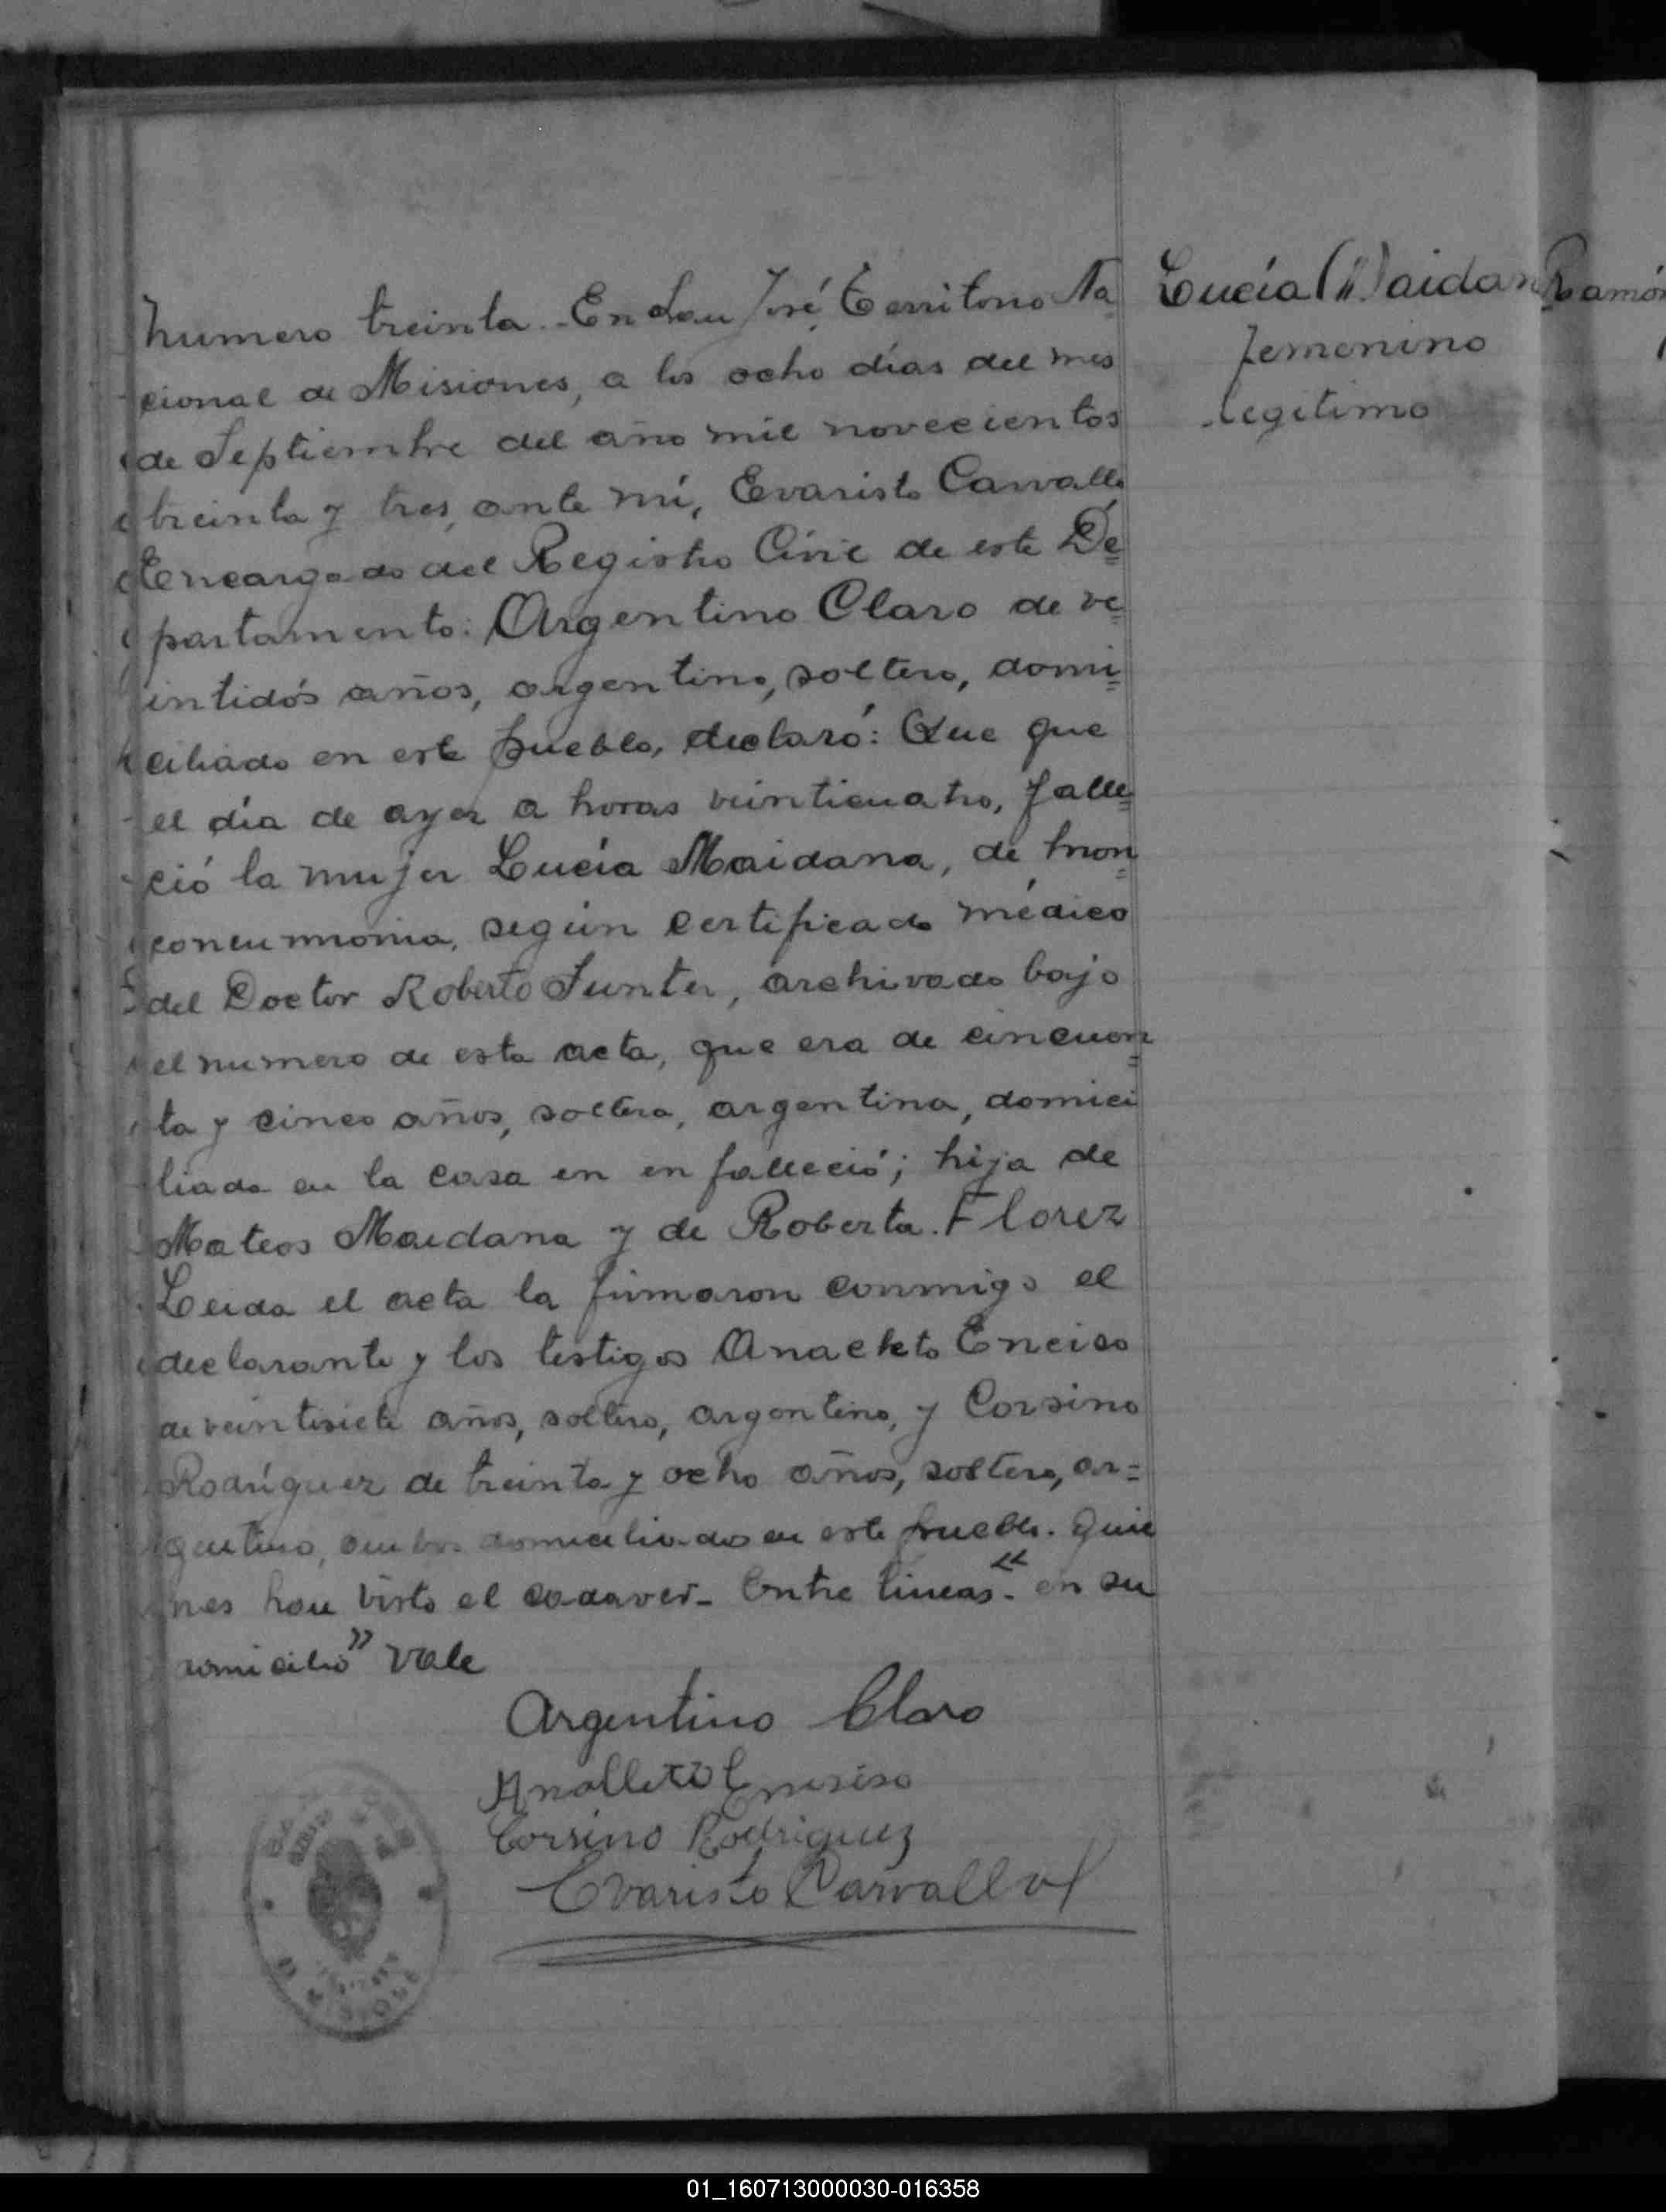 Numero treinta. En San José, Territorio Na
cional de Misiones, a los ocho días del mes
de Septiembre del año mil novecientos
treinta y tres, ante mí, Evaristo Carvallo
Encargado del Registro Civil de este De
partamento: Argentino Claro de ve
intidós años, argentino, soltero, domi
ciliado en este pueblo, declaró: Que que
el día de ayer a horas veinticuatro, falle
ció la mujer Lucía Maidana, de bron
coneumonia, según certificado médico
del Doctor Roberto Sunter, archivado bajo
el numero de esta acta, que era de cincuen
ta y cinco años, soltera, argentina, domici
liada en la casa en en falleció; hija de
Mateos Maidana y de Roberta Florez
Leida el acta la firmaron conmigo el
declarante y los testigos Anacleto Enciso
de veintisiete años, soltero, argentino, y Corsino
Rodríguez de treinta y ocho años, soltero, ar=
gentino, ambos domiciliados en este pueblo. Quie
nes han visto el cadaver - Entre líneas - "en su
domicilio" Vale
Argentino Claro
Anolleto Enciso
Corsino Rodriguez
Evaristo Carvallo
Lucía Maidan
femenino
legitimo
Ramón
01_160713000030-016358